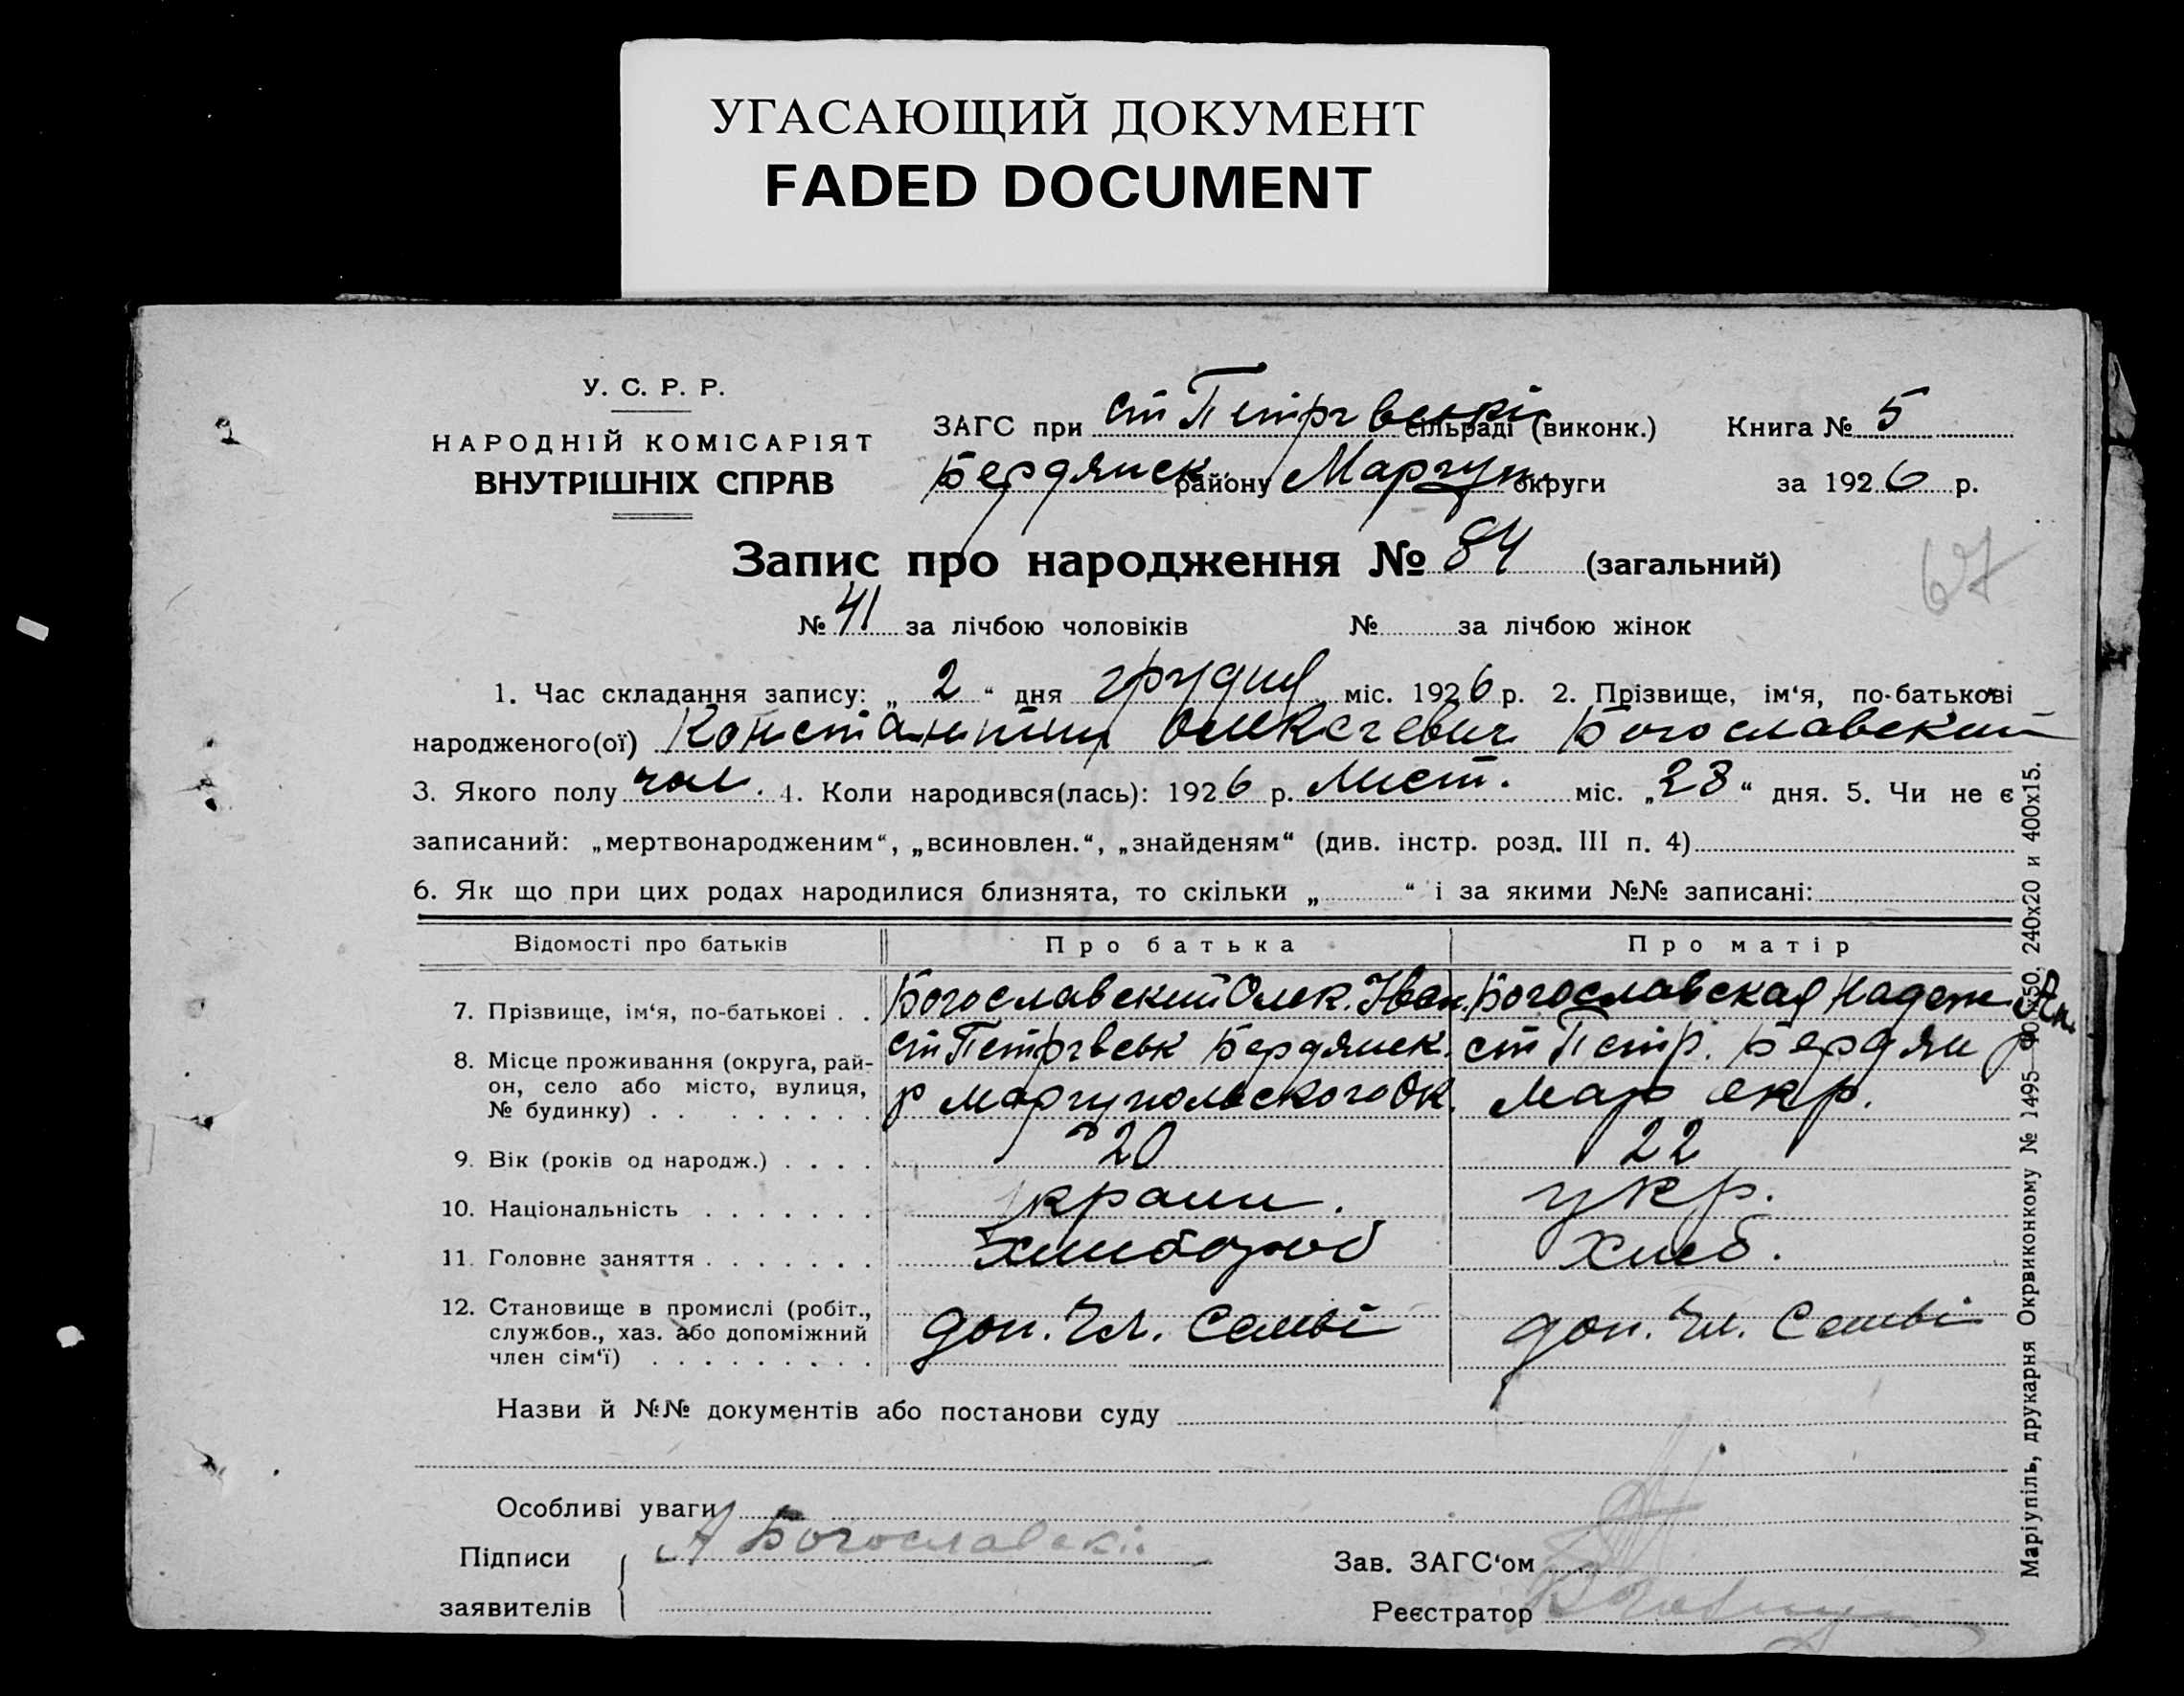 УГАСАЮЩИЙ ДОКУМЕНТ
FADED DOCUMENT
У. С. Р. Р.
НАРОДНІЙ КОМІСАРІЯТ
ВНУТРІШНІХ СПРАВ
ЗАГС при ст Петрівській сільраді (виконк.) Книга № 5
Бердянск району Маріуп. округи за 1926 р.
Запис про народження № 84 (загальний)
67
№ 41 за лічбою чоловіків № за лічбою жінок
1. Час складання запису: „ 2 “ дня грудня міс. 1926 р. 2. Прізвище, ім‘я, по-батькові
народженого(ої) Константин Олексієвич Богославский
3. Якого полу чол. 4. Коли народився(лась): 1926 р. Лист. міс. „28“ дня. 5. Чи не є
записаний: „мертвонародженим“, „всиновлен.“, „знайденям“ (див. інстр. розд. III п. 4)
6. Як що при цих родах народилися близнята, то скільки „ “ і за якими №№ записані:
Відомості про батьків Про батька Про матір
7. Прізвище, ім‘я, по-батькові . . Богославский Олек. Иван. Богославская Надеж
8. Місце проживання (округа, рай- ст Петрівськ Бердянск. ст Петр. Бердян р
он, село або місто, вулиця, р Маріупольского Ок. Мар окр.
№ будинку) . . . . . . . .
9. Вік (років од народж.) . . . . 20 22
10. Національність . . . . . . . Украин. укр.
11. Головне заняття . . . . . . . Хлибороб Хлиб.
12. Становище в промислі (робіт., доп. Чл. Семьі доп. Чл. Семьі
службов., хаз. або допоміжний
член сім‘ї) . . . . . . . . .
Назви й №№ документів або постанови суду
Особливі уваги
Підписи А Богославскі
заявителів
Зав. ЗАГС‘ом
Реєстратор
Маріупіль, друкарня Окрвиконкому № 1495— 240x20 и 400x15.